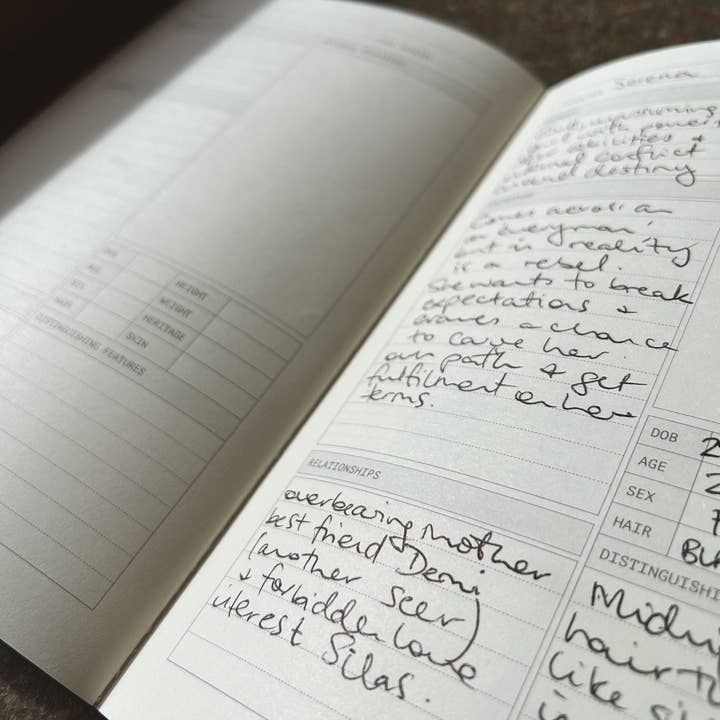 HEIGHT
AGE
WEIGHT
SEX
HERITAGE
HAIR
SKIN
DISTINGUISHING FEATURES
Serena
abilities &
conflict
destiny
across an
everyman,
but in reality
is a rebel.
She wants to break
expectations &
craves a chance
to carve her
own path & get
fulfilment on her
terms.
RELATIONSHIPS
overbearing mother
best friend Demi
(another seer)
& forbidden love
interest Silas.
DOB 2
AGE 2
SEX
HAIR
DISTINGUISHI
Midn
hair
like